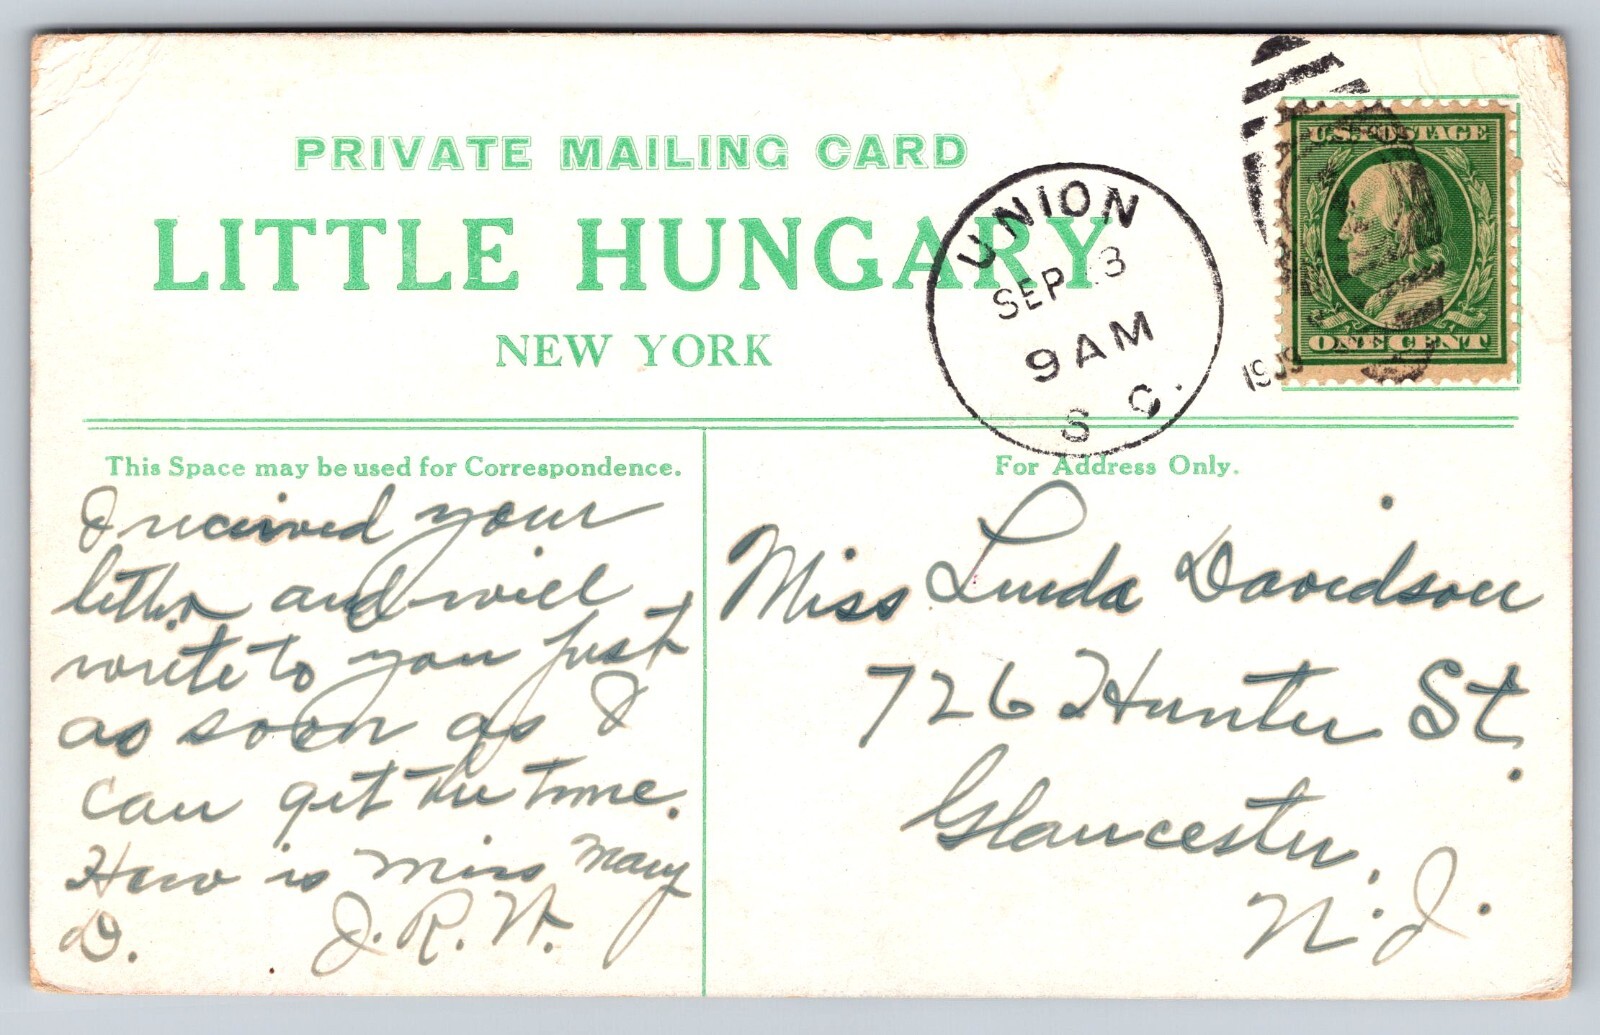 PRIVATE MAILING CARD
LITTLE HUNGARY
NEW YORK
UNION
SEP 3
9 AM
S C.
1909
U.S. POSTAGE
ONE CENT
This Space may be used for Correspondence.
I received your
letter and will
write to you just
as soon as I
can get the time.
How is Miss Mary
D. J. R. H.
For Address Only.
Miss Linda Davidson
726 Hunter St.
Gloucester,
N. J.